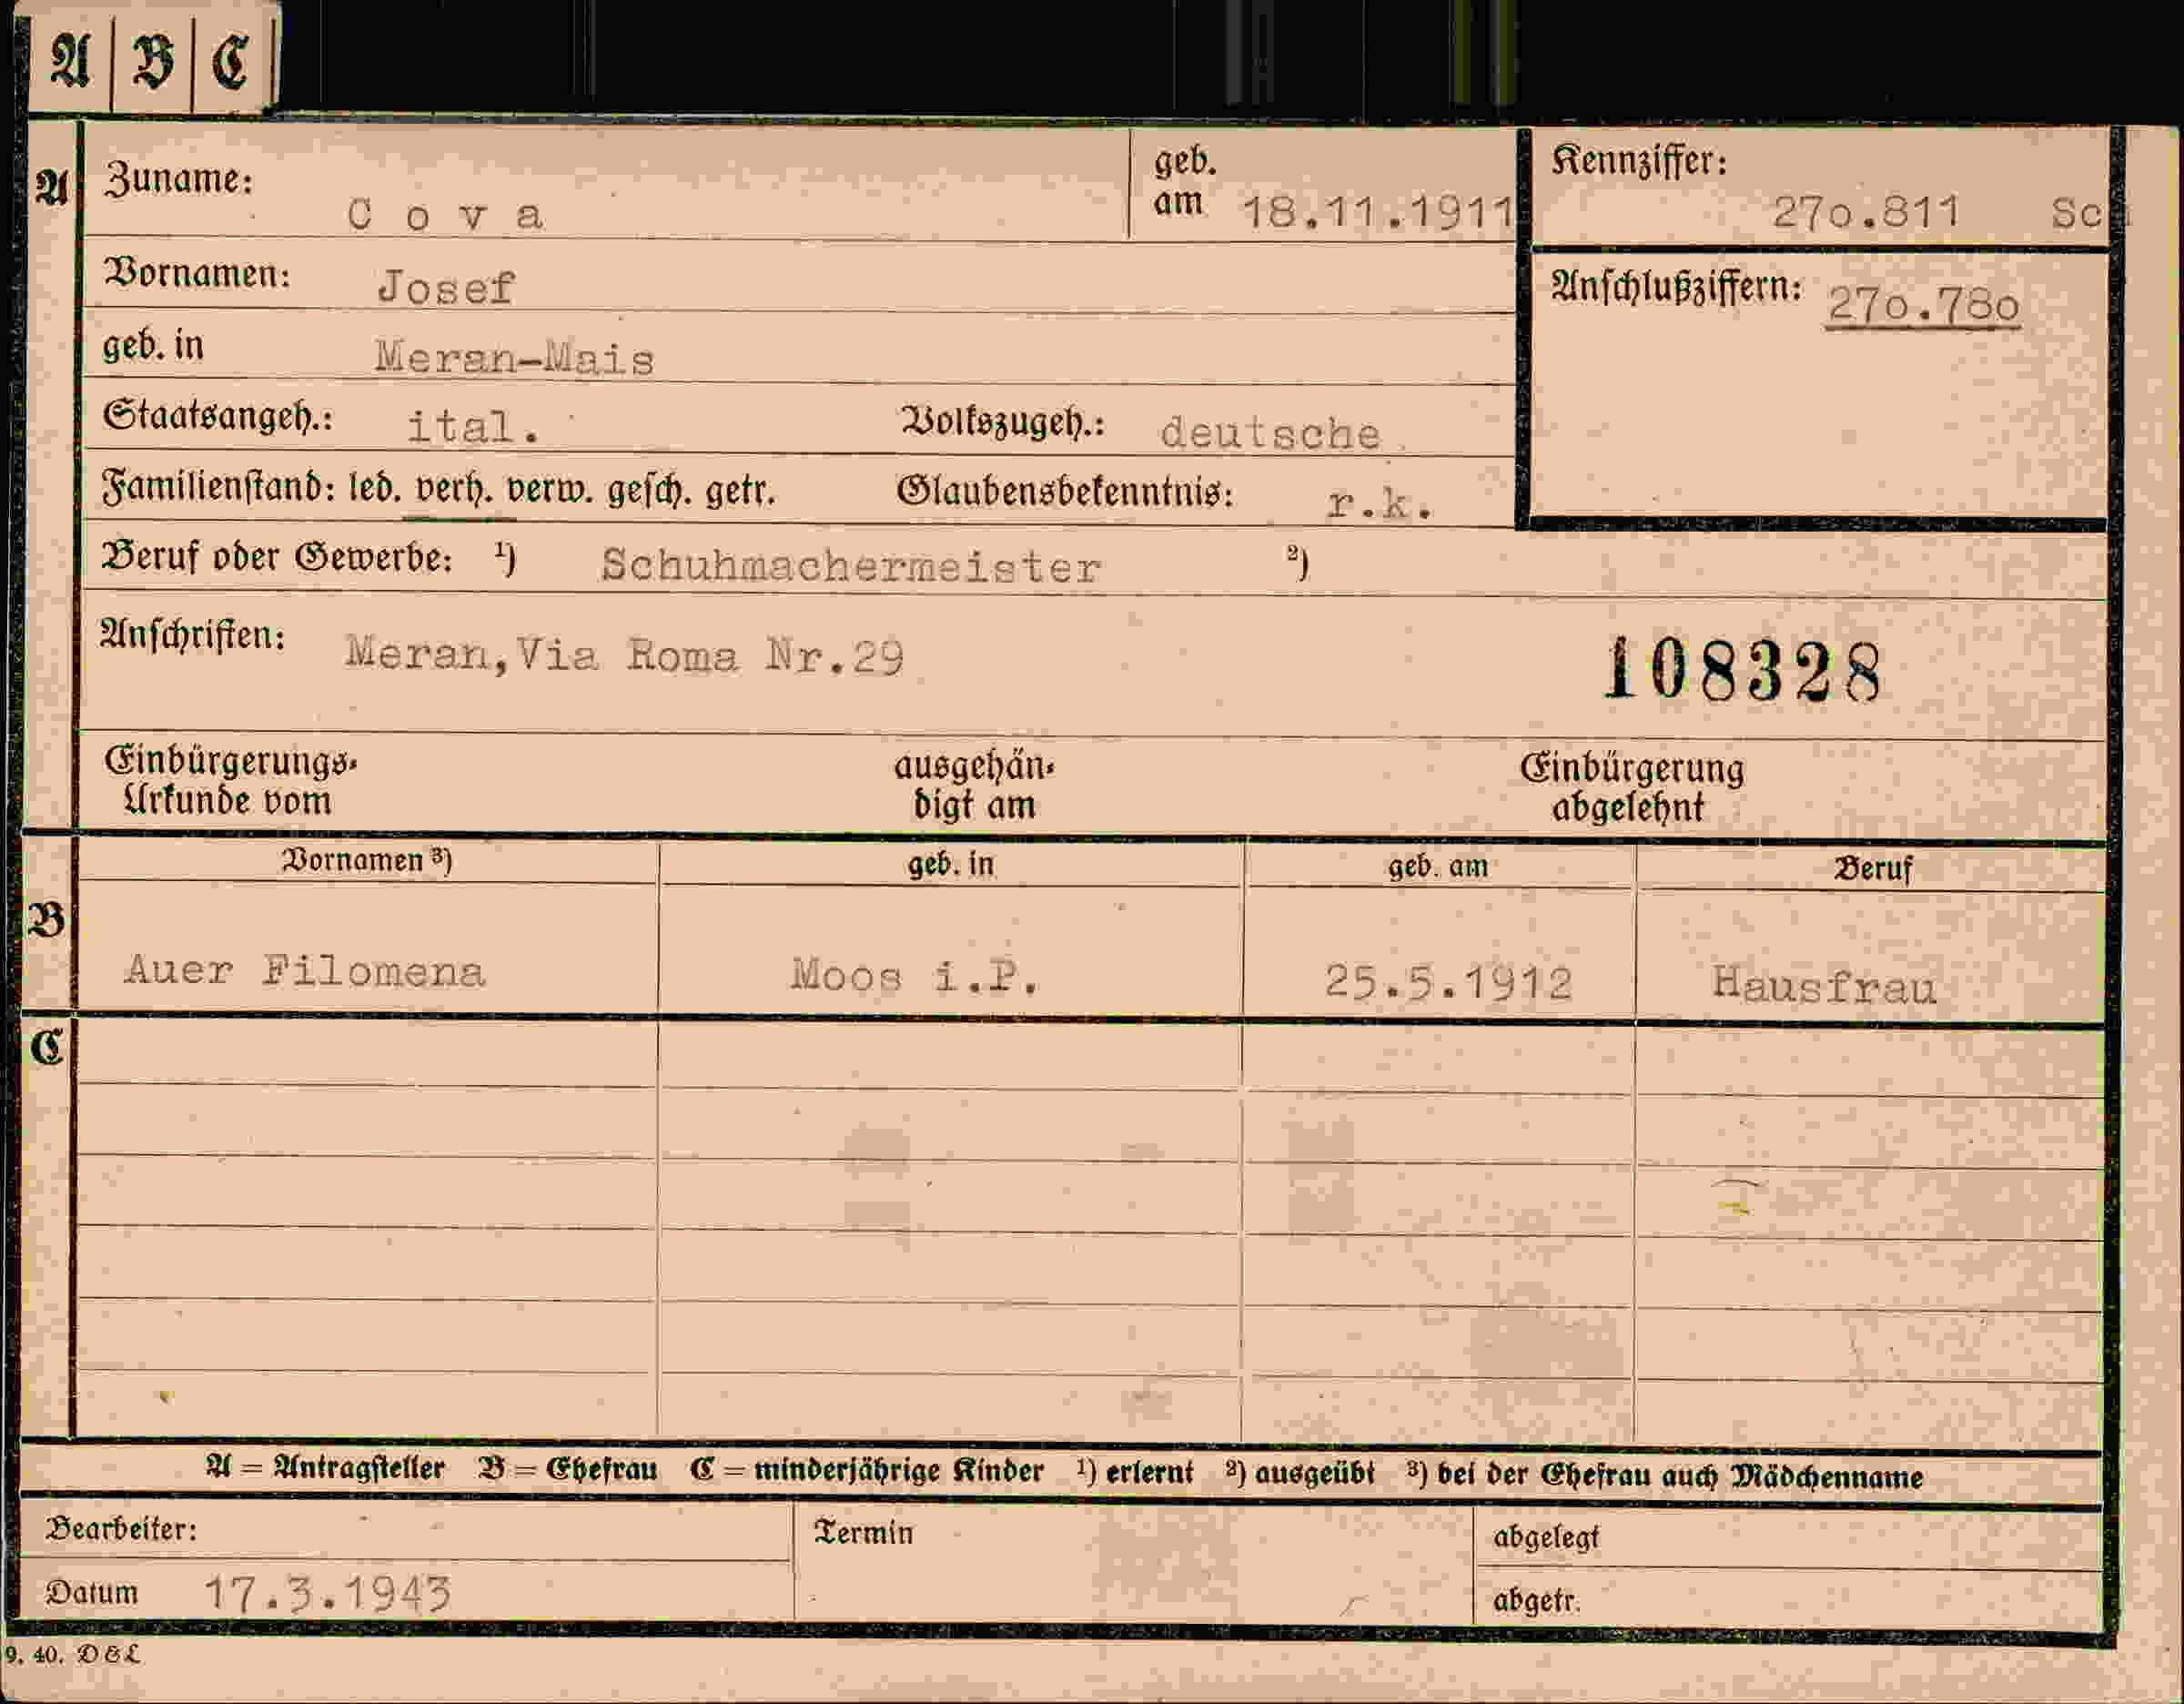 A B C
A Zuname: Cova geb. am 18.11.1911 Kennziffer: 27o.811 Sch
Vornamen: Josef Anschlußziffern: 27o.78o
geb. in Meran-Mais
Staatsangeh.: ital. Volkszugeh.: deutsche
Familienstand: led. verh. verw. gesch. getr. Glaubensbekenntnis: r.k.
Beruf oder Gewerbe: ¹) Schuhmachermeister ²)
Anschriften: Meran,Via Roma Nr.29 108328
Einbürgerungs- ausgehän- Einbürgerung
Urkunde vom digt am abgelehnt
Vornamen ³) geb. in geb. am Beruf
B Auer Filomena Moos i.P. 25.5.1912 Hausfrau
C
A = Antragsteller B = Ehefrau C = minderjährige Kinder ¹) erlernt ²) ausgeübt ³) bei der Ehefrau auch Mädchenname
Bearbeiter: Termin abgelegt
Datum 17.3.1943 abgetr.
9. 40. D&L